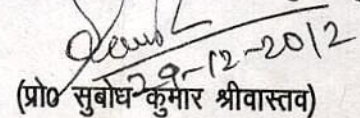 29-12-2012
(प्रो० सुबोध कुमार श्रीवास्तव)